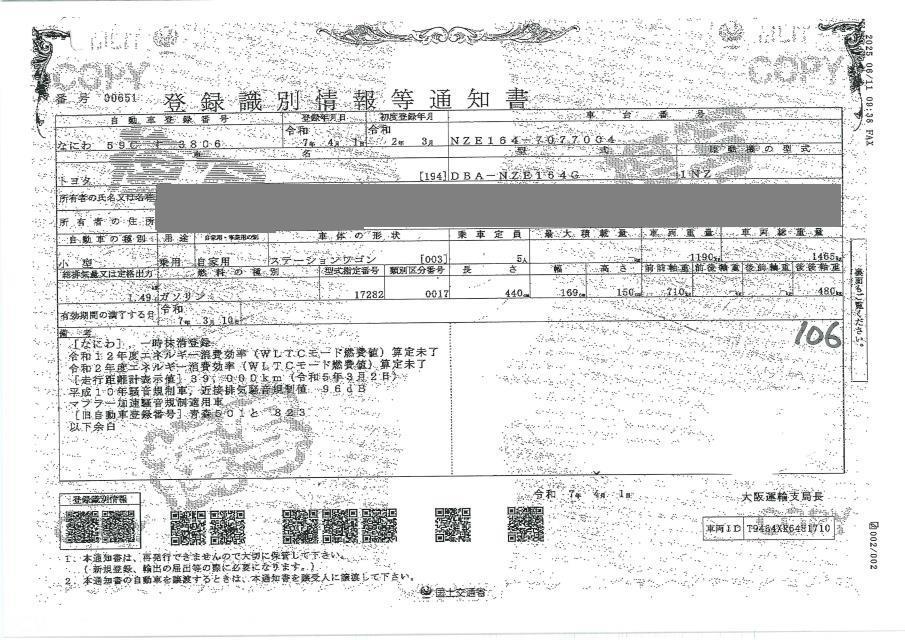 COPY
COPY
2025 06/11 09:38 FAX
番号 00651
登録識別情報等通知書
自動車登録番号 登録年月日 初度登録年月 車台番号
なにわ 590 3806 令和 7年 4月 1日 令和 2年 3月 NZE164-7077004
車名 型式 原動機の型式
トヨタ [194] DBA-NZE164G 1NZ
所有者の氏名又は名称
所有者の住所
自動車の種別 用途 自家用・事業用の別 車体の形状 乗車定員 最大積載量 車両重量 車両総重量
小型 乗用 自家用 ステーションワゴン [003] 5人 kg 1190kg 1465kg
総排気量又は定格出力 燃料の種別 型式指定番号 類別区分番号 長さ 幅 高さ 前前軸重 前後軸重 後前軸重 後後軸重
1.49 ガソリン 17282 0017 440cm 169cm 150cm 710kg kg kg 480kg
有効期間の満了する日 令和 7年 3月 10日
裏面もご覧ください。
備考
106
[なにわ],一時抹消登録
令和12年度エネルギー消費効率(WLTCモード燃費値)算定未了
令和2年度エネルギー消費効率(WLTCモード燃費値)算定未了
[走行距離計表示値]39,000km(令和5年3月2日)
平成10年騒音規制車,近接排気騒音規制値 96dB
マフラー加速騒音規制適用車
[旧自動車登録番号]青森501と 823
以下余白
令和 7年 4月 1日 大阪運輸支局長
登録識別情報
車両ID
1. 本通知書は、再発行できませんので大切に保管して下さい。
(新規登録、輸出の届出等の際に必要になります。)
2. 本通知書の自動車を譲渡するときは、本通知書を譲受人に譲渡して下さい。
002/002
国土交通省